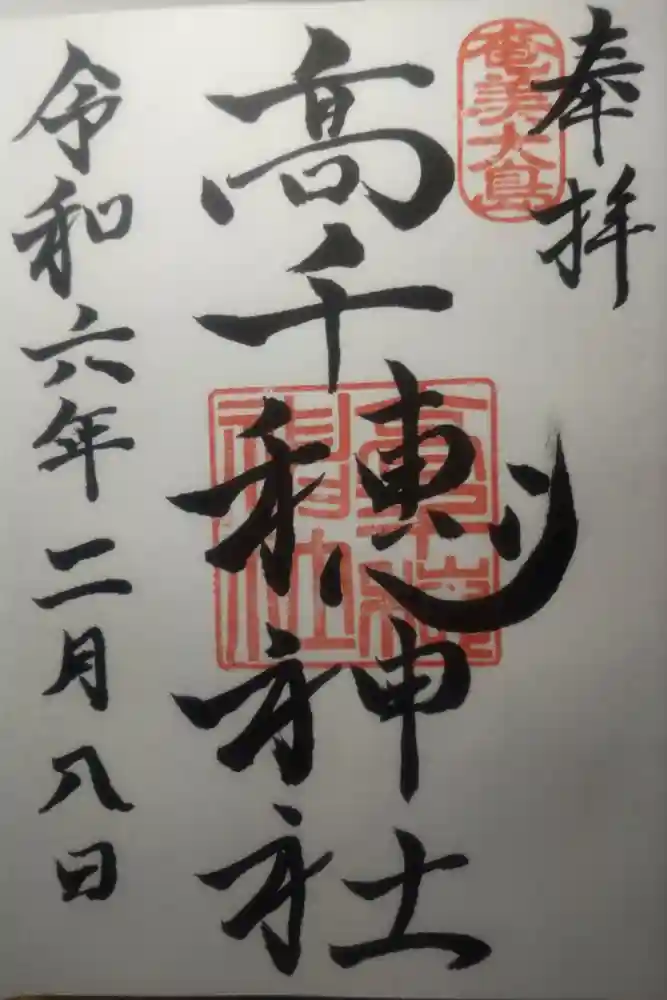 奉拝
奄美大島
高千穂神社
高千穂神社
令和六年二月八日